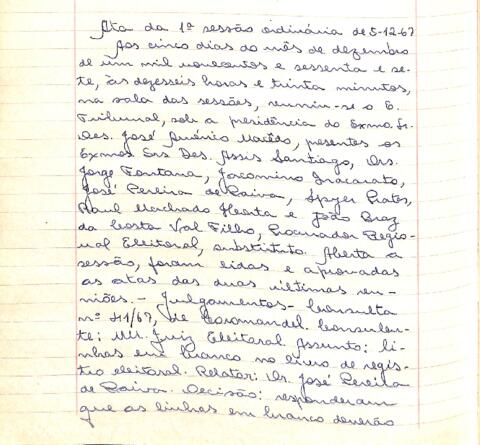 Ata da 1ª sessão ordinária de 5-12-67
Aos cinco dias do mês de dezembro
de um mil novecentos e sessenta e se-
te, às dezesseis horas e trinta minutos,
na sala das sessões, reuniu-se o E.
Tribunal, sob a presidência do Exmo. Sr.
Des. José Américo Macêdo, presentes os
Exmos Srs Des. Assis Santiago, Drs.
Jorge Fontana, Jacomino Inacarato,
José Pereira de Paiva, Spyer Prates,
Raul Machado Horta e João Braz
da Costa Val Filho, Procurador Regio-
nal Eleitoral, substituto. Aberta a
sessão, foram lidas e aprovadas
as atas das duas últimas reu-
niões. - Julgamentos - Consulta
nº 411/67, de Coromandel. Consulen-
te: MM. Juiz Eleitoral. Assunto: li-
nhas em branco no livro de regis-
tro eleitoral. Relator: Dr. José Pereira
de Paiva. Decisão: responderam
que as linhas em branco deverão